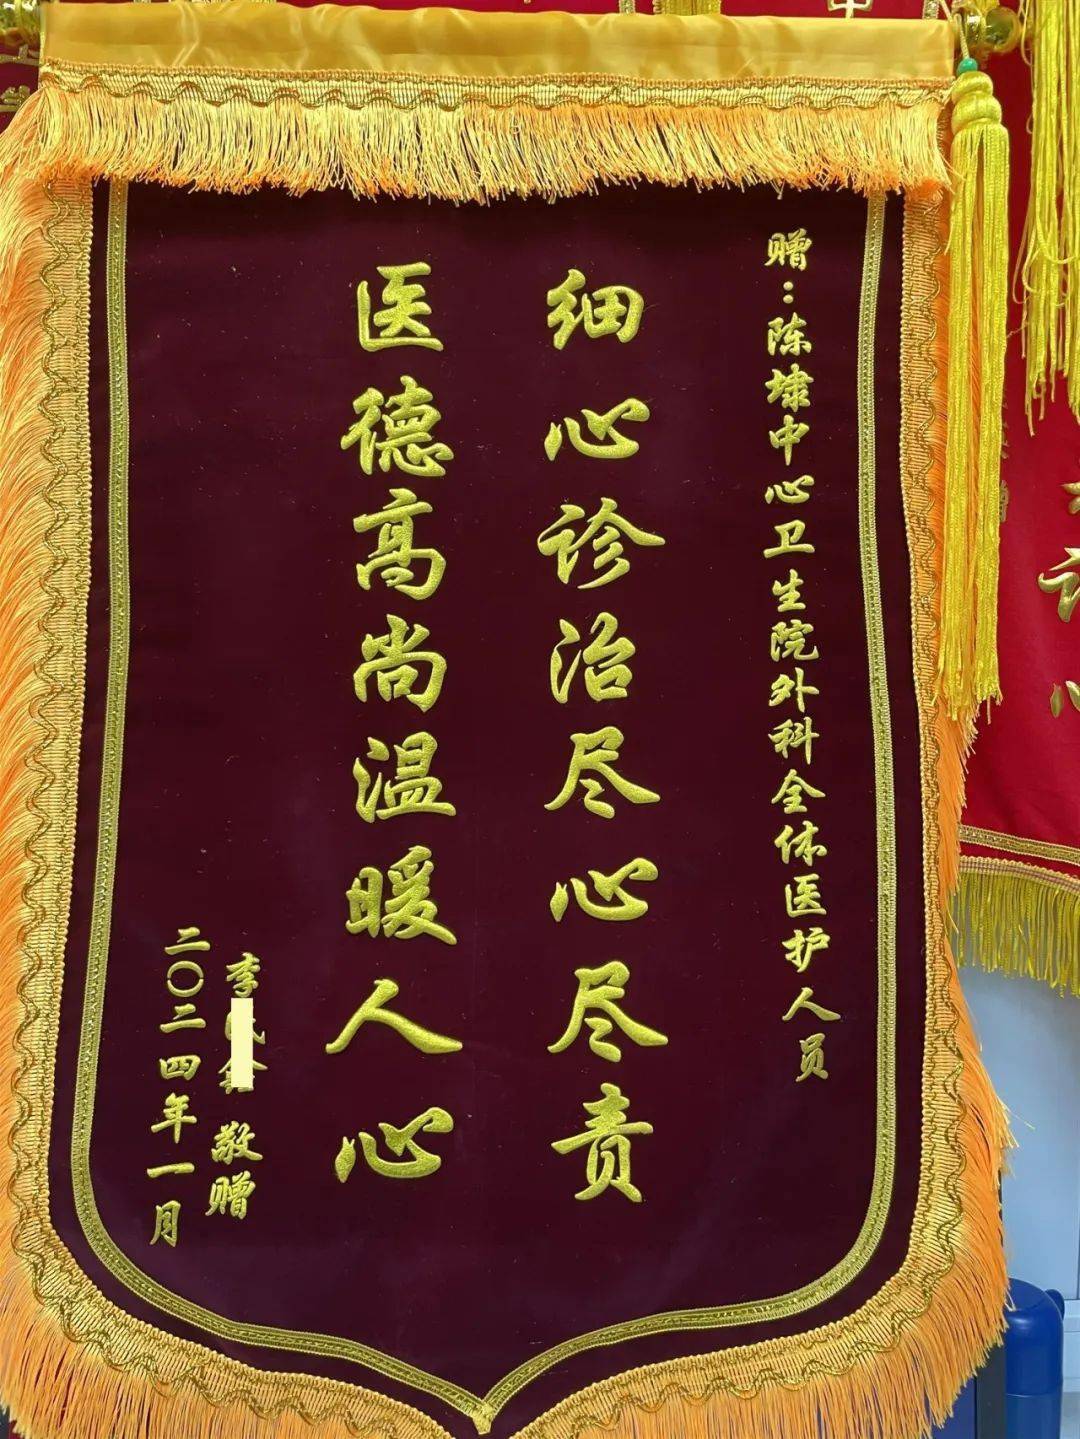 赠：陈埭中心卫生院外科全体医护人员
细心诊治尽心尽责
医德高尚温暖人心
李 敬赠
二〇二四年一月